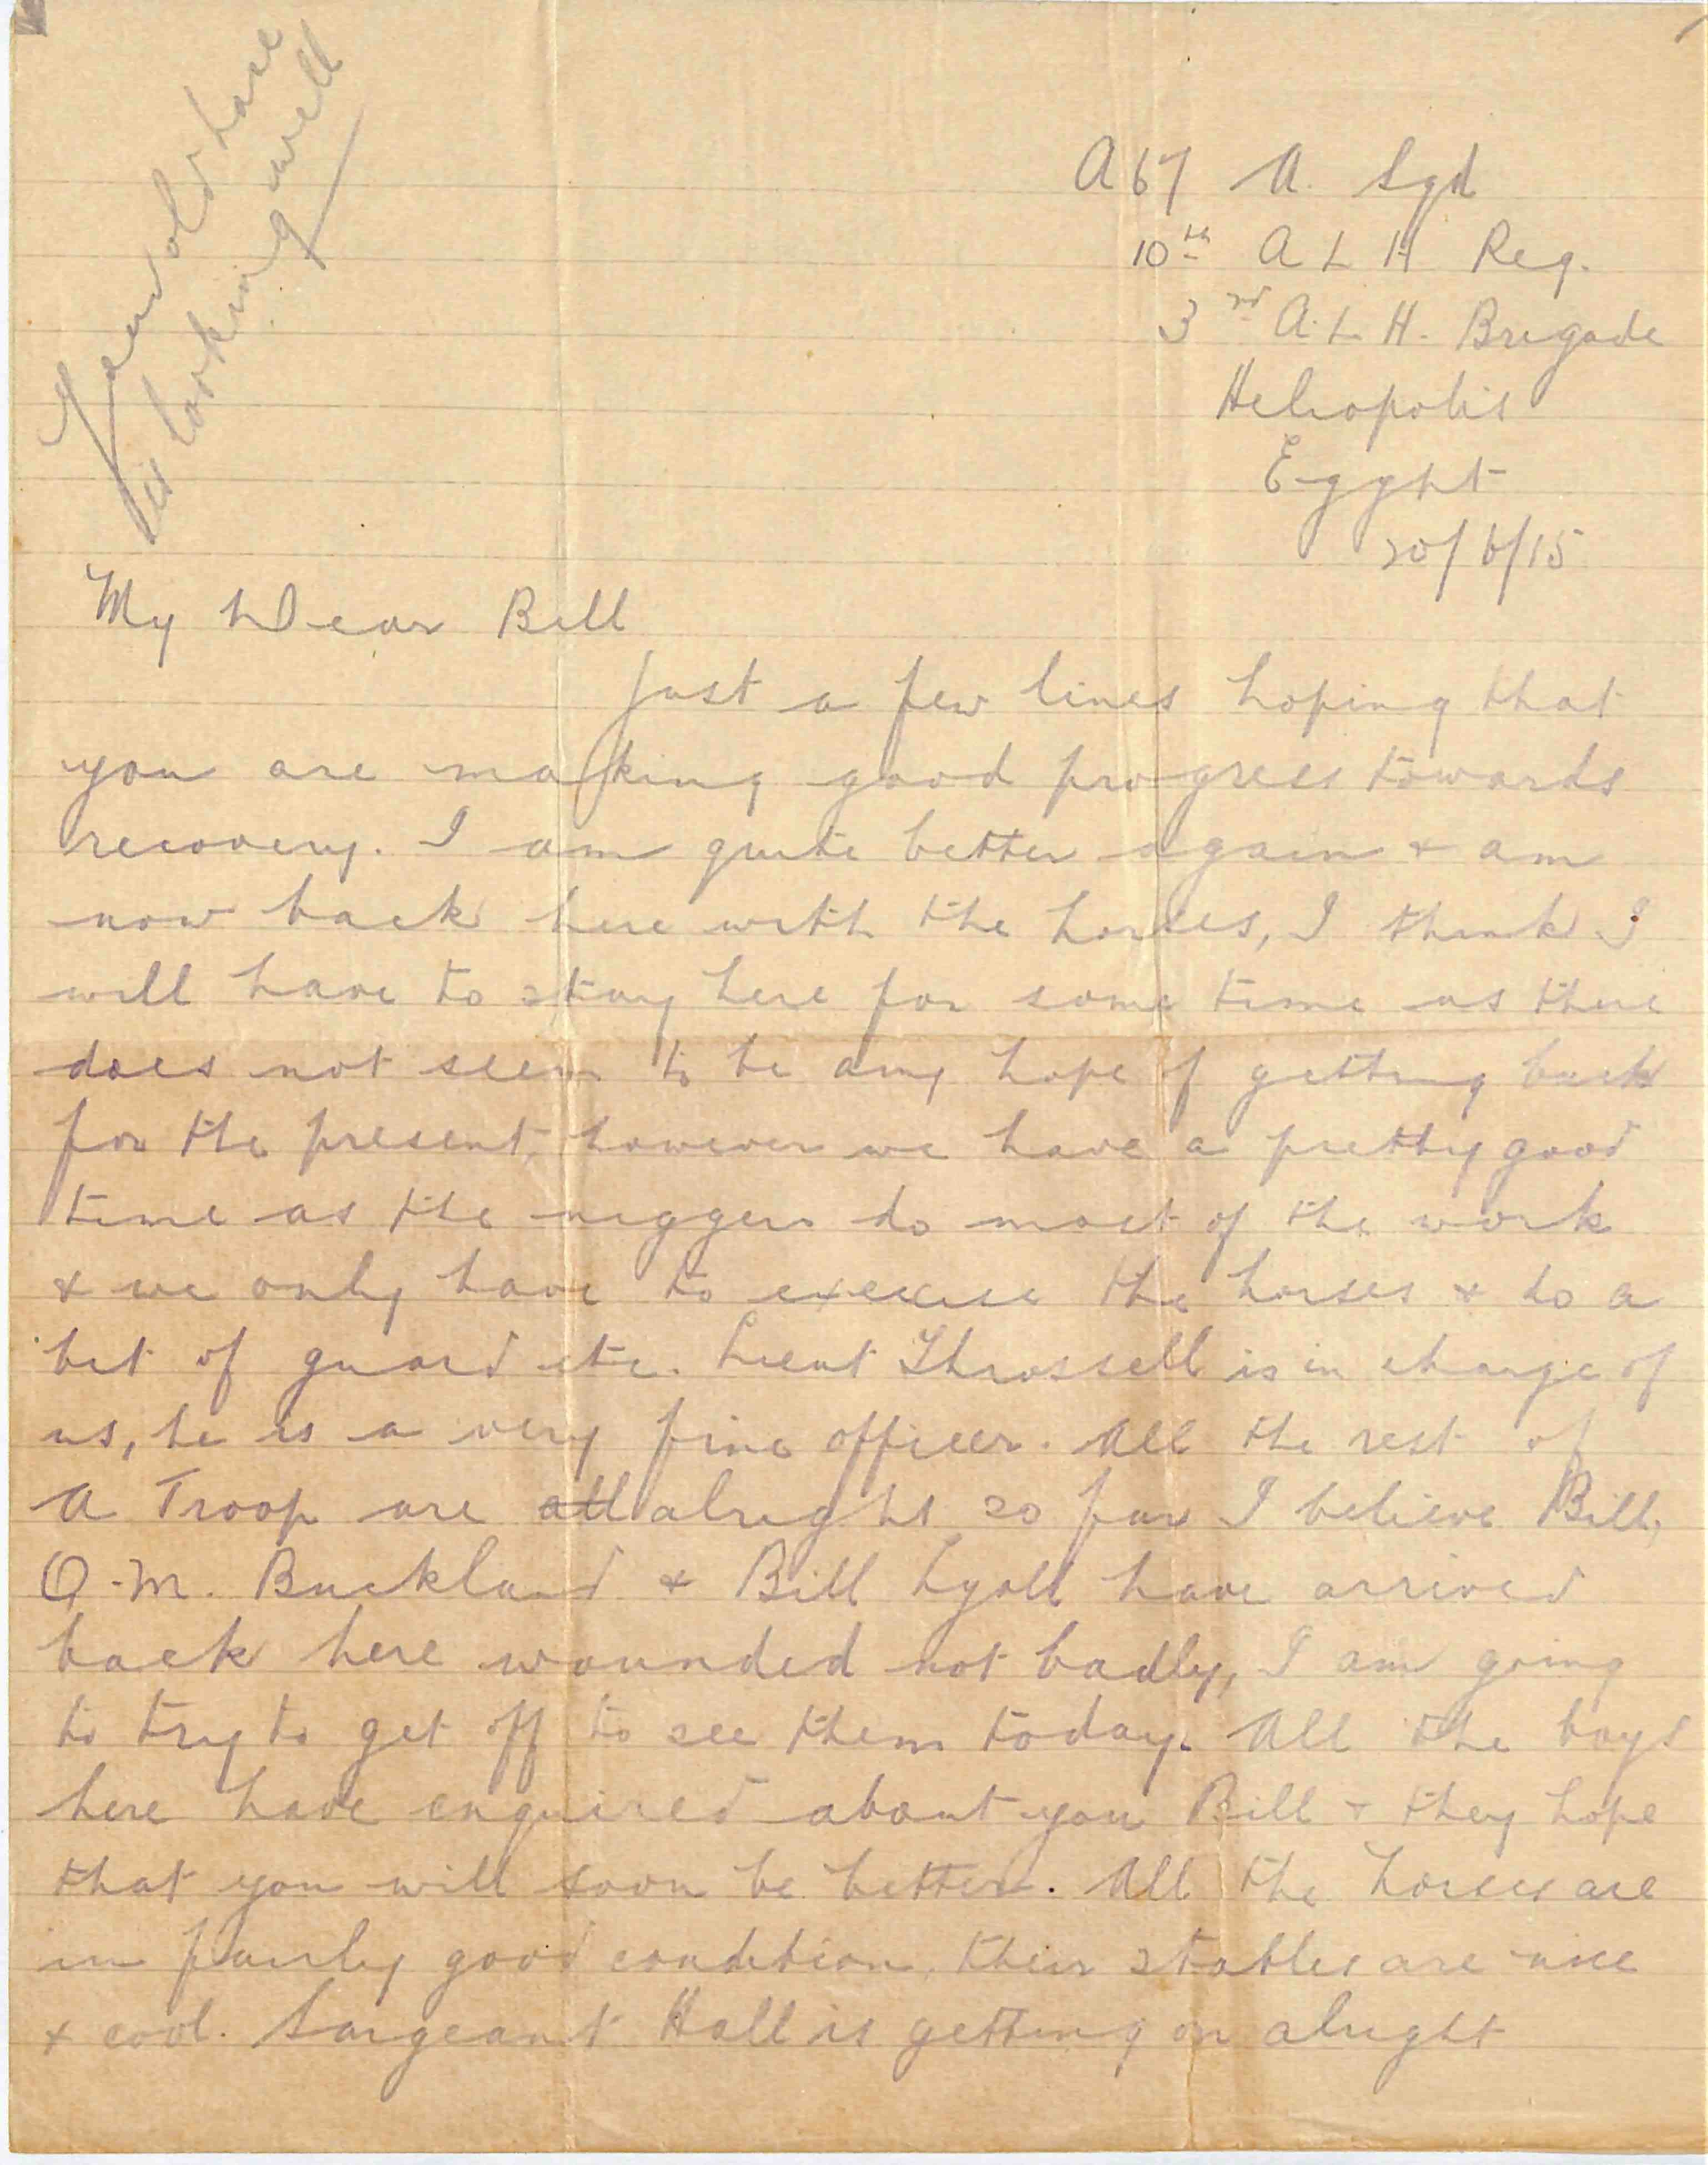 Your old horse
is looking well
A 67 A. Sqd
10th A L H Reg.
3rd A. L. H. Brigade
Heliopolis
Egypt
20/6/15
My Dear Bill
Just a few lines hoping that
you are making good progress towards
recovery. I am quite better again & am
now back here with the horses, I think I
will have to stay here for some time as there
does not seem to be any hope of getting back
for the present, however we have a pretty good
time as the niggers do most of the work
& we only have to exercise the horses & do a
bit of guard etc. Lieut Throssell is in charge of
us, he is a very fine officer. All the rest of
A Troop are all alright so far I believe Bill,
Q.M. Buckland & Bill Lyall have arrived
back here wounded not badly, I am going
to try to get off to see them today. All the boys
here have enquired about you Bill & they hope
that you will soon be better. All the horses are
in fairly good condition, their stables are nice
& cool. Sargeant Hall is getting on alright